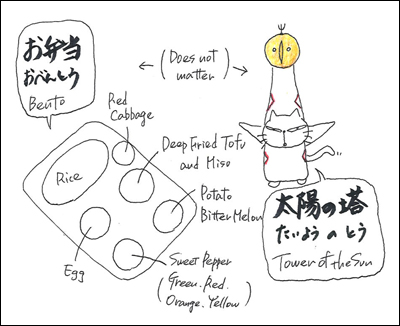 お弁当
おべんとう
Bento
(Does not
matter)
Red
Cabbage
Deep Fried Tofu
and Miso
Rice
Potato
Bitter Melon
Egg
Sweet Pepper
(Green. Red.
Orange. Yellow)
太陽の塔
たいようのとう
Tower of the Sun